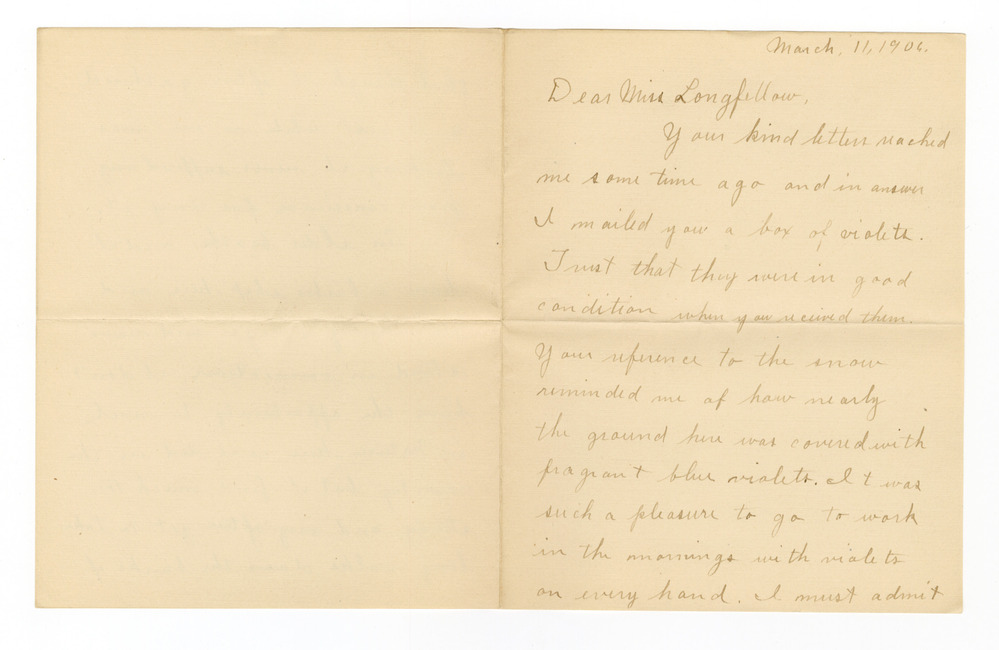 March, 11, 1906.
Dear Miss Longfellow,
Your kind letter reached
me some time ago and in answer
I mailed you a box of violets.
Trust that they were in good
condition when you received them.
Your reference to the snow
reminded me of how nearly
the ground here was covered with
fragrant blue violets. It was
such a pleasure to go to work
in the mornings with violets
on every hand. I must admit